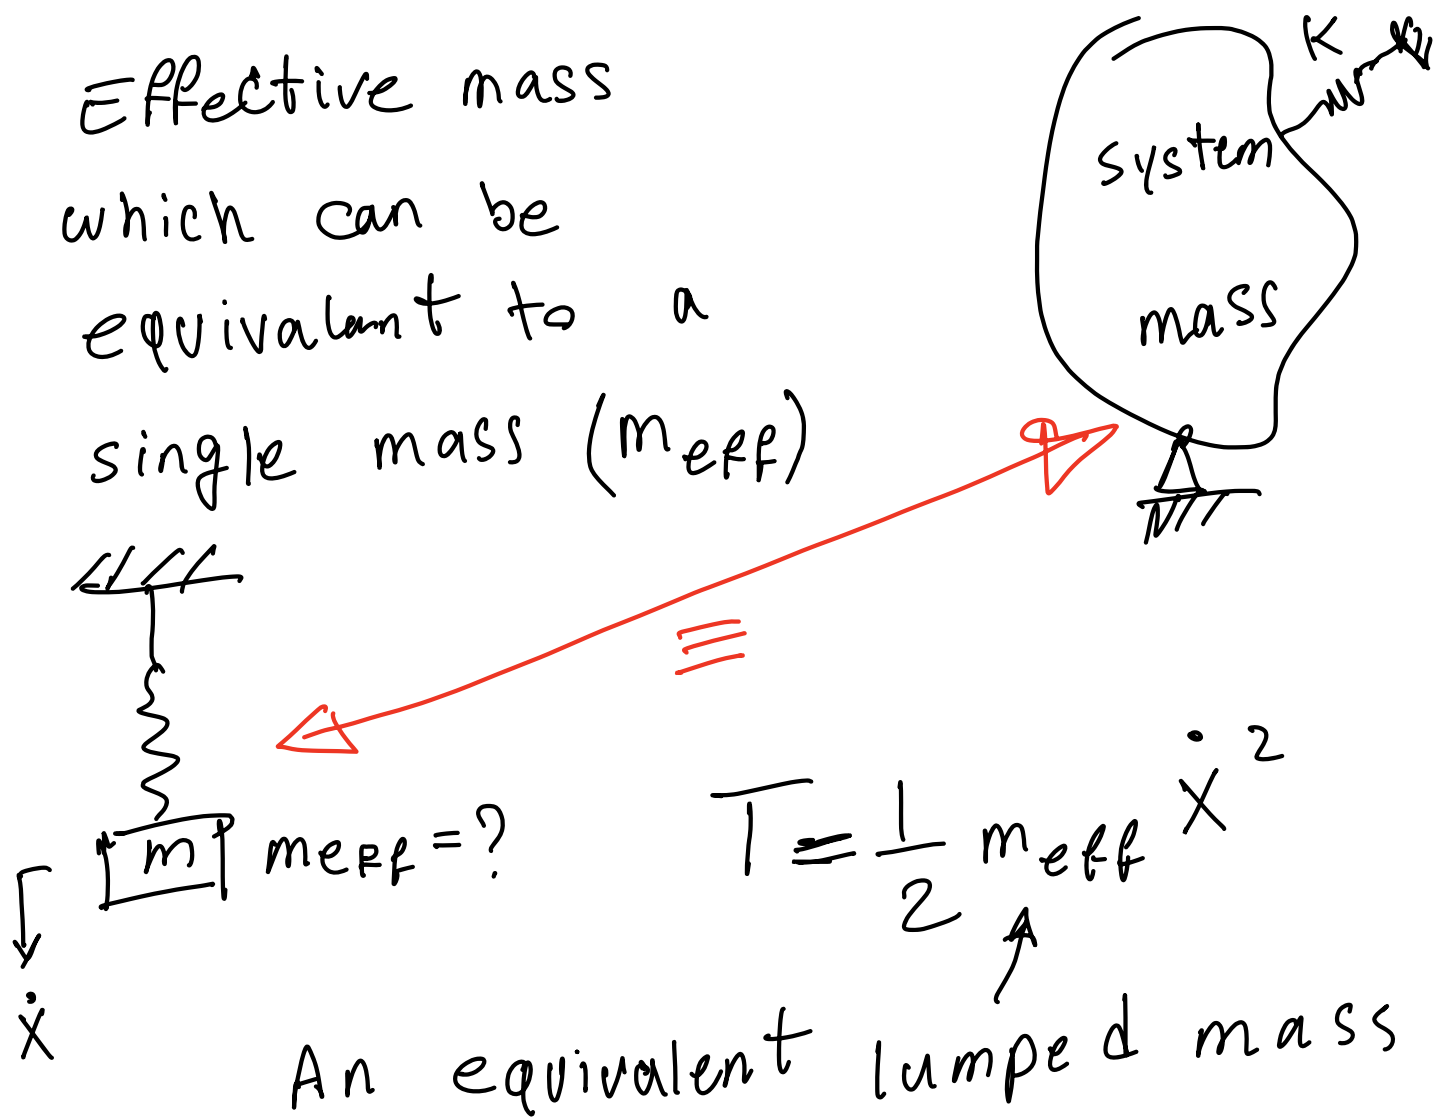 Effective mass
which can be
equivalent to a
single mass (m_eff)
K
system
mass
≡
m
m_eff = ?
ẋ
T = 1/2 m_eff ẋ²
An equivalent lumped mass